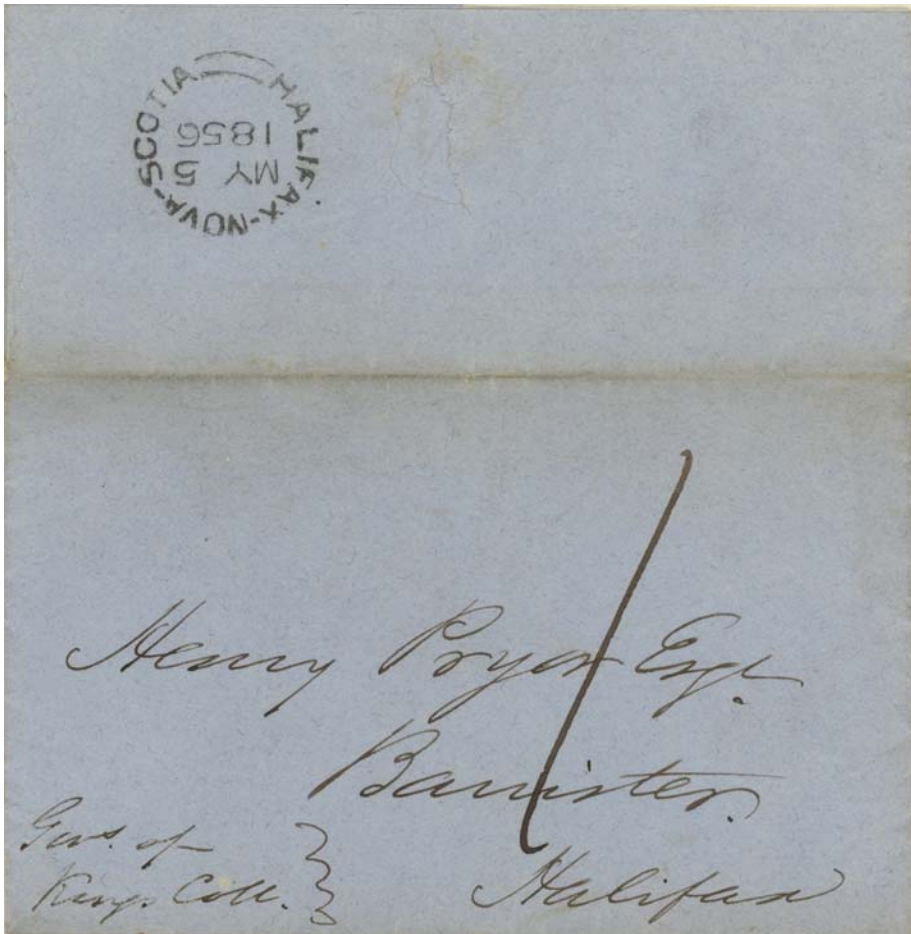 HALIFAX-NOVA-SCOTIA
MY 5
1856
1
Henry Pryor Esqr.
Barrister.
Halifax
Govs. of
Kings Coll.